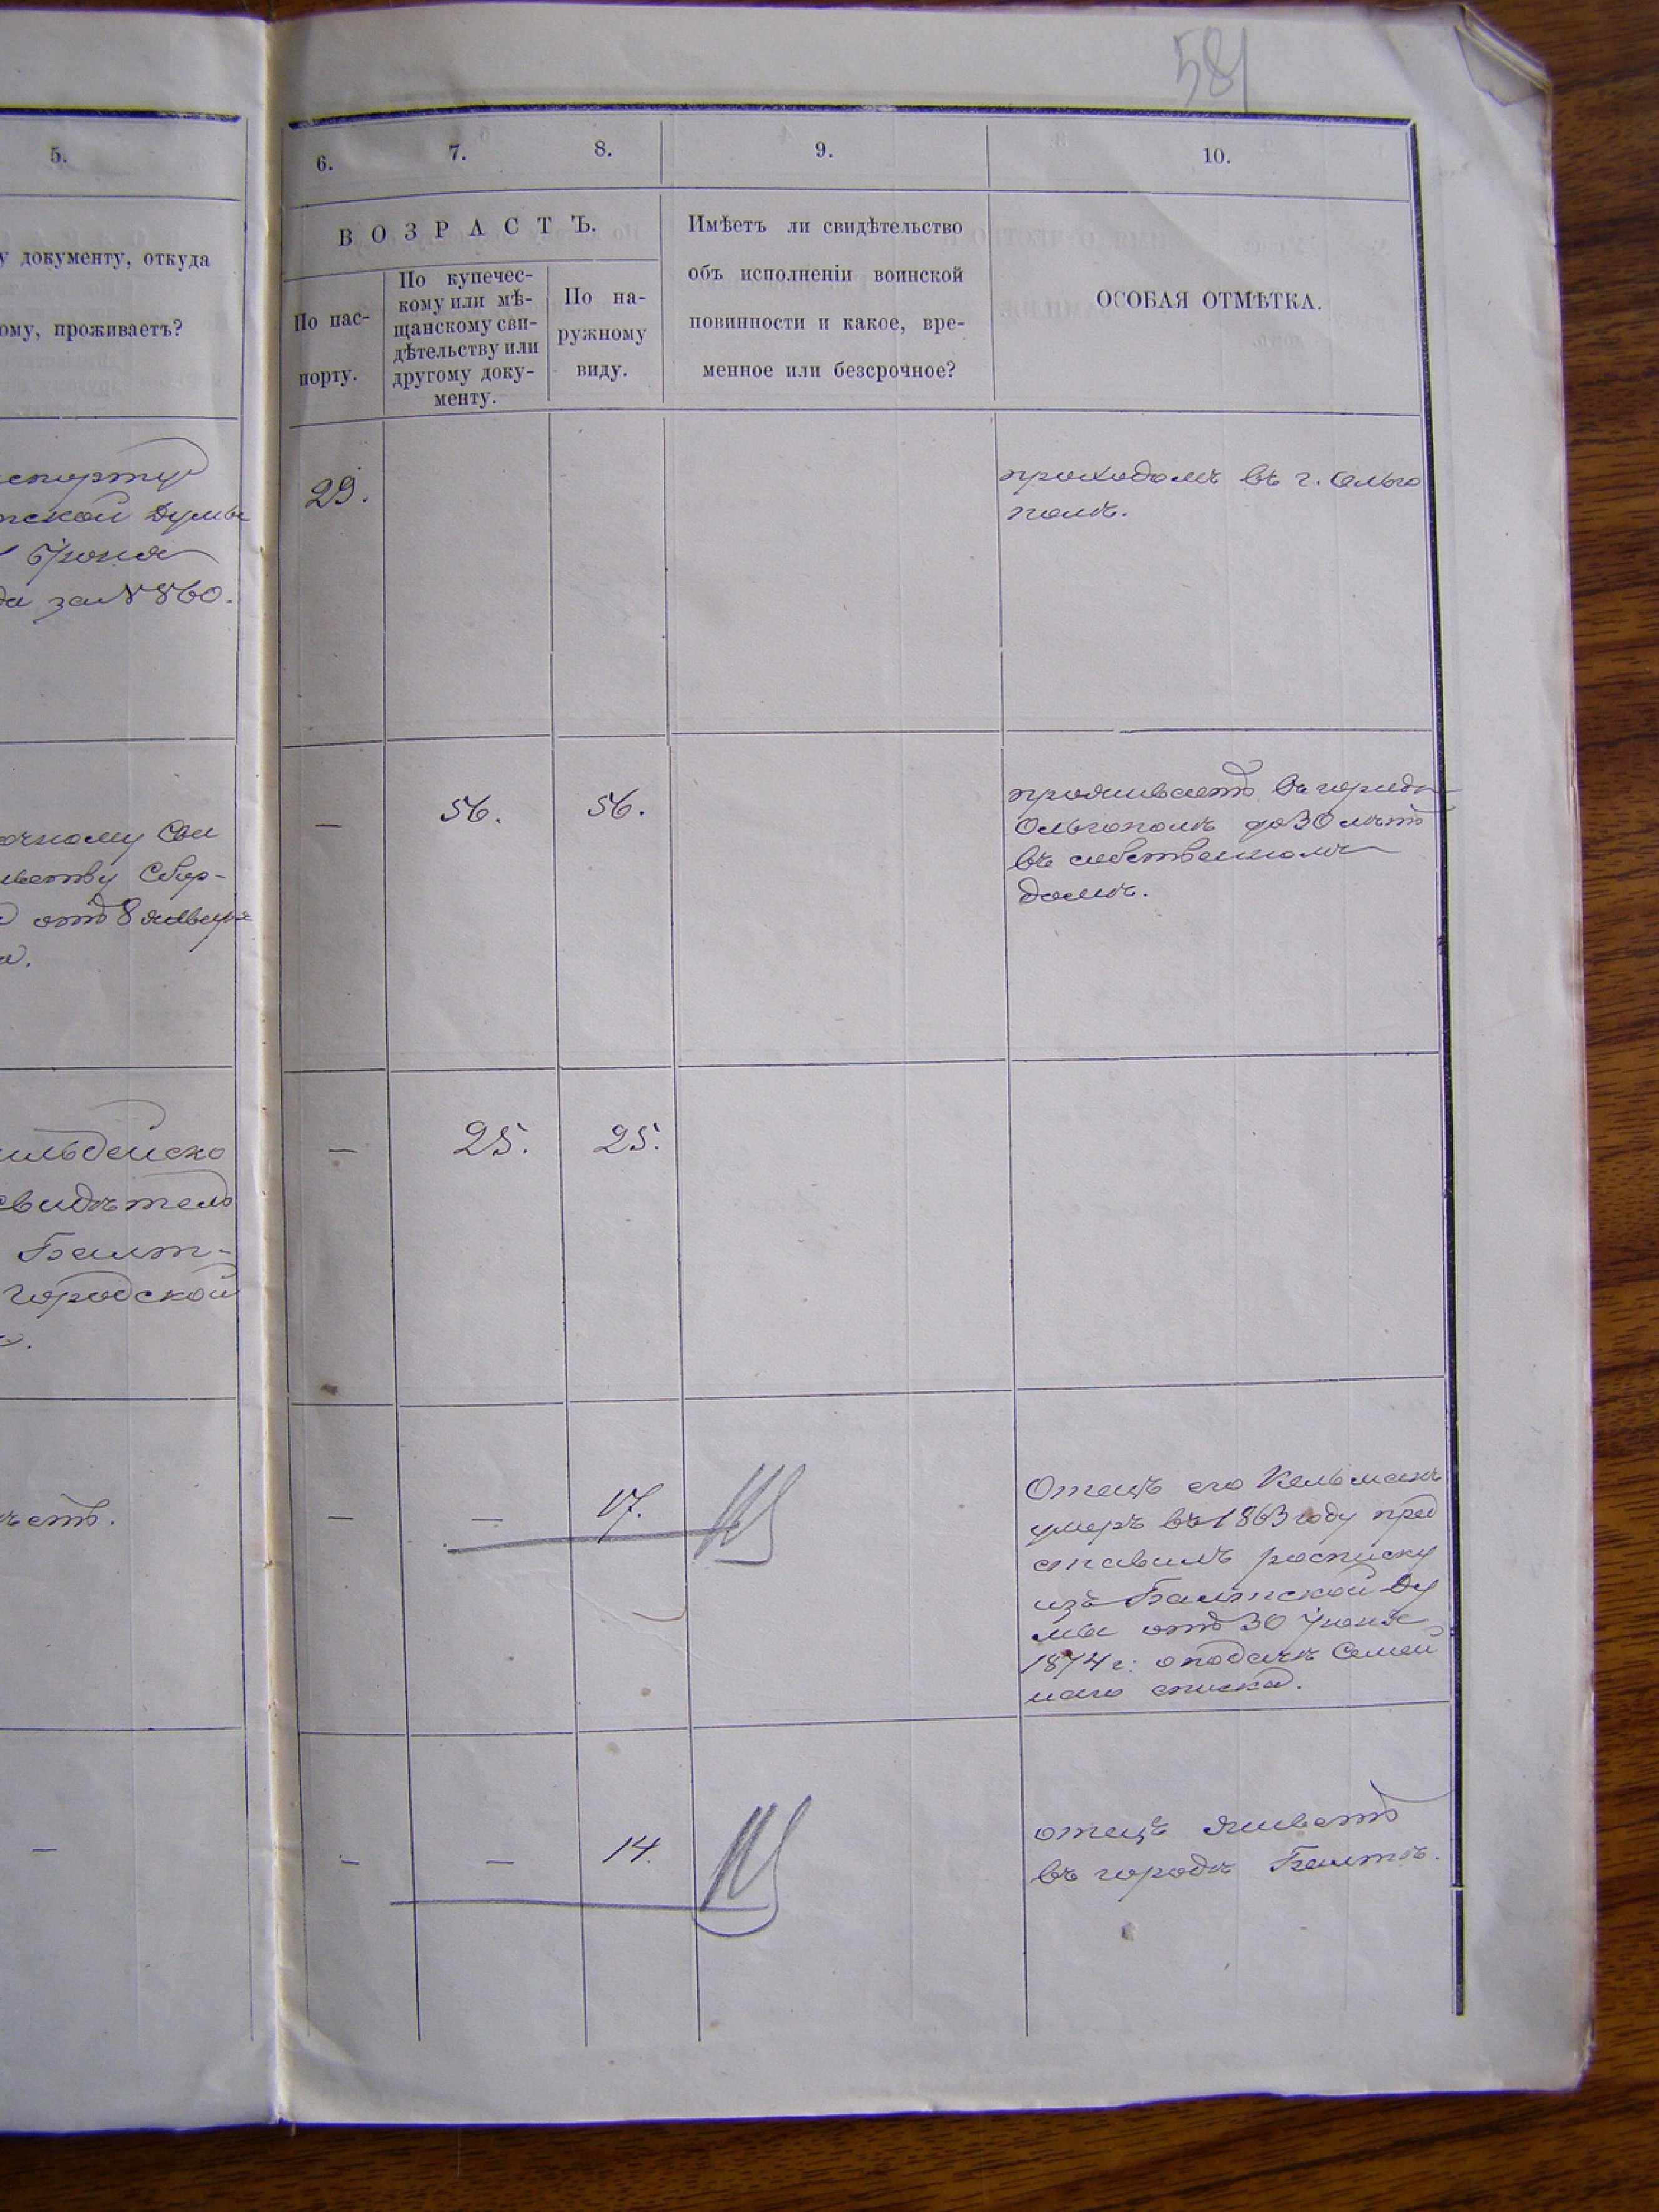 581
5.
6.
7.
8.
9.
10.
у документу, откуда
ому, проживаетъ?
ВОЗРАСТЪ.
По пас-
портy.
По купечес-
кому или мѣ-
щанскому сви-
дѣтельству или
другому доку-
менту.
По на-
ружному
виду.
Имѣетъ ли свидѣтельство
объ исполненіи воинской
повинности и какое, вре-
менное или безсрочное?
ОСОБАЯ ОТМѢТКА.
спорту
тской Думы
Іюня
за № 860.
29.
проходомъ въ г. Ольго
полѣ.
очному Сви
льству Сбор-
отъ 8 января
—
56.
56.
проживаетъ въ городѣ
Ольгополѣ до 30 лѣтъ
въ собственномъ
домѣ.
ильдейско
свидѣтель
Балт-
городской
—
25.
25.
ѣетъ.
—
—
17.
Отецъ его Кельманъ
умеръ въ 1863 году пред
ставилъ росписку
изъ Балтской Ду
мы отъ 30 Іюня
1874 г. о подачѣ Семей
наго списка.
—
—
—
14.
отецъ живетъ
въ городѣ Балтѣ.